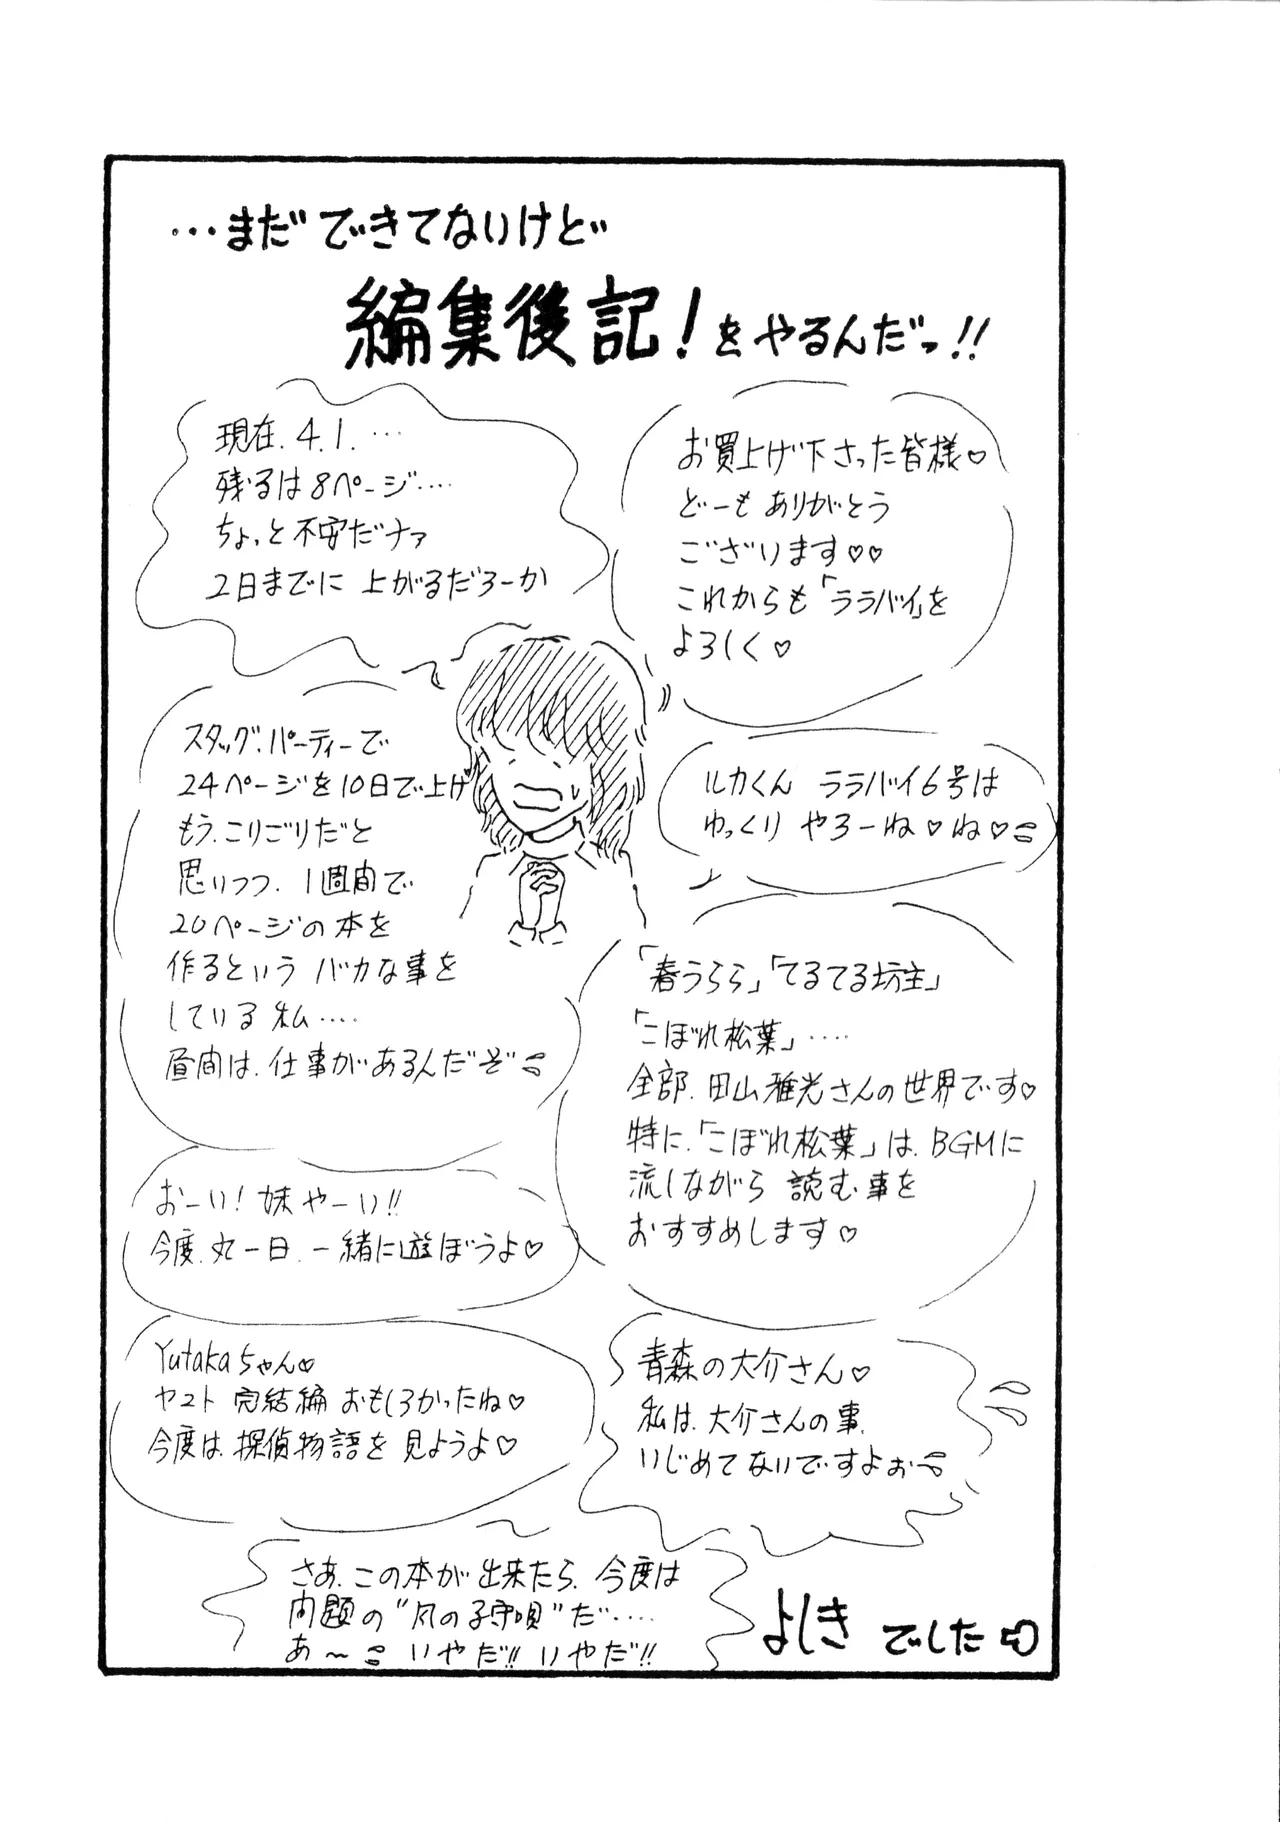 …まだできてないけど
編集後記!をやるんだっ!!
お買上げ下さった皆様♡
どーもありがとう
ございます♡♡
これからも「ララバイ」を
よろしく♡
現在.4.1.…
残るは8ページ….
ちょっと不安だナァ
2日までに上がるだろーか
ルカくん ララバイ6号は
ゆっくり やろーね♡ね♡
スタッグ.パーティーで
24ページを10日で上げ
もう.こりごりだと
思いつつ.1週間で
20ページの本を
作るという バカな事を
している 私….
昼間は.仕事があるんだぞ
「春うらら」「てるてる坊主」
「こぼれ松葉」….
全部.田山雅光さんの世界です♡
特に.「こぼれ松葉」は.BGMに
流しながら 読む事を
おすすめします♡
おーい!妹やーい!!
今度.丸一日.一緒に遊ぼうよ♡
Yutakaちゃん♡
ヤスト 完結編 おもしろかったね♡
今度は.探偵物語を 見ようよ♡
青森の大介さん♡
私は.大介さんの事.
いじめてないですよぉ
さあ.この本が出来たら.今度は
問題の"風の子守唄"だ….
あ〜 いやだ!!いやだ!!
よしき でした